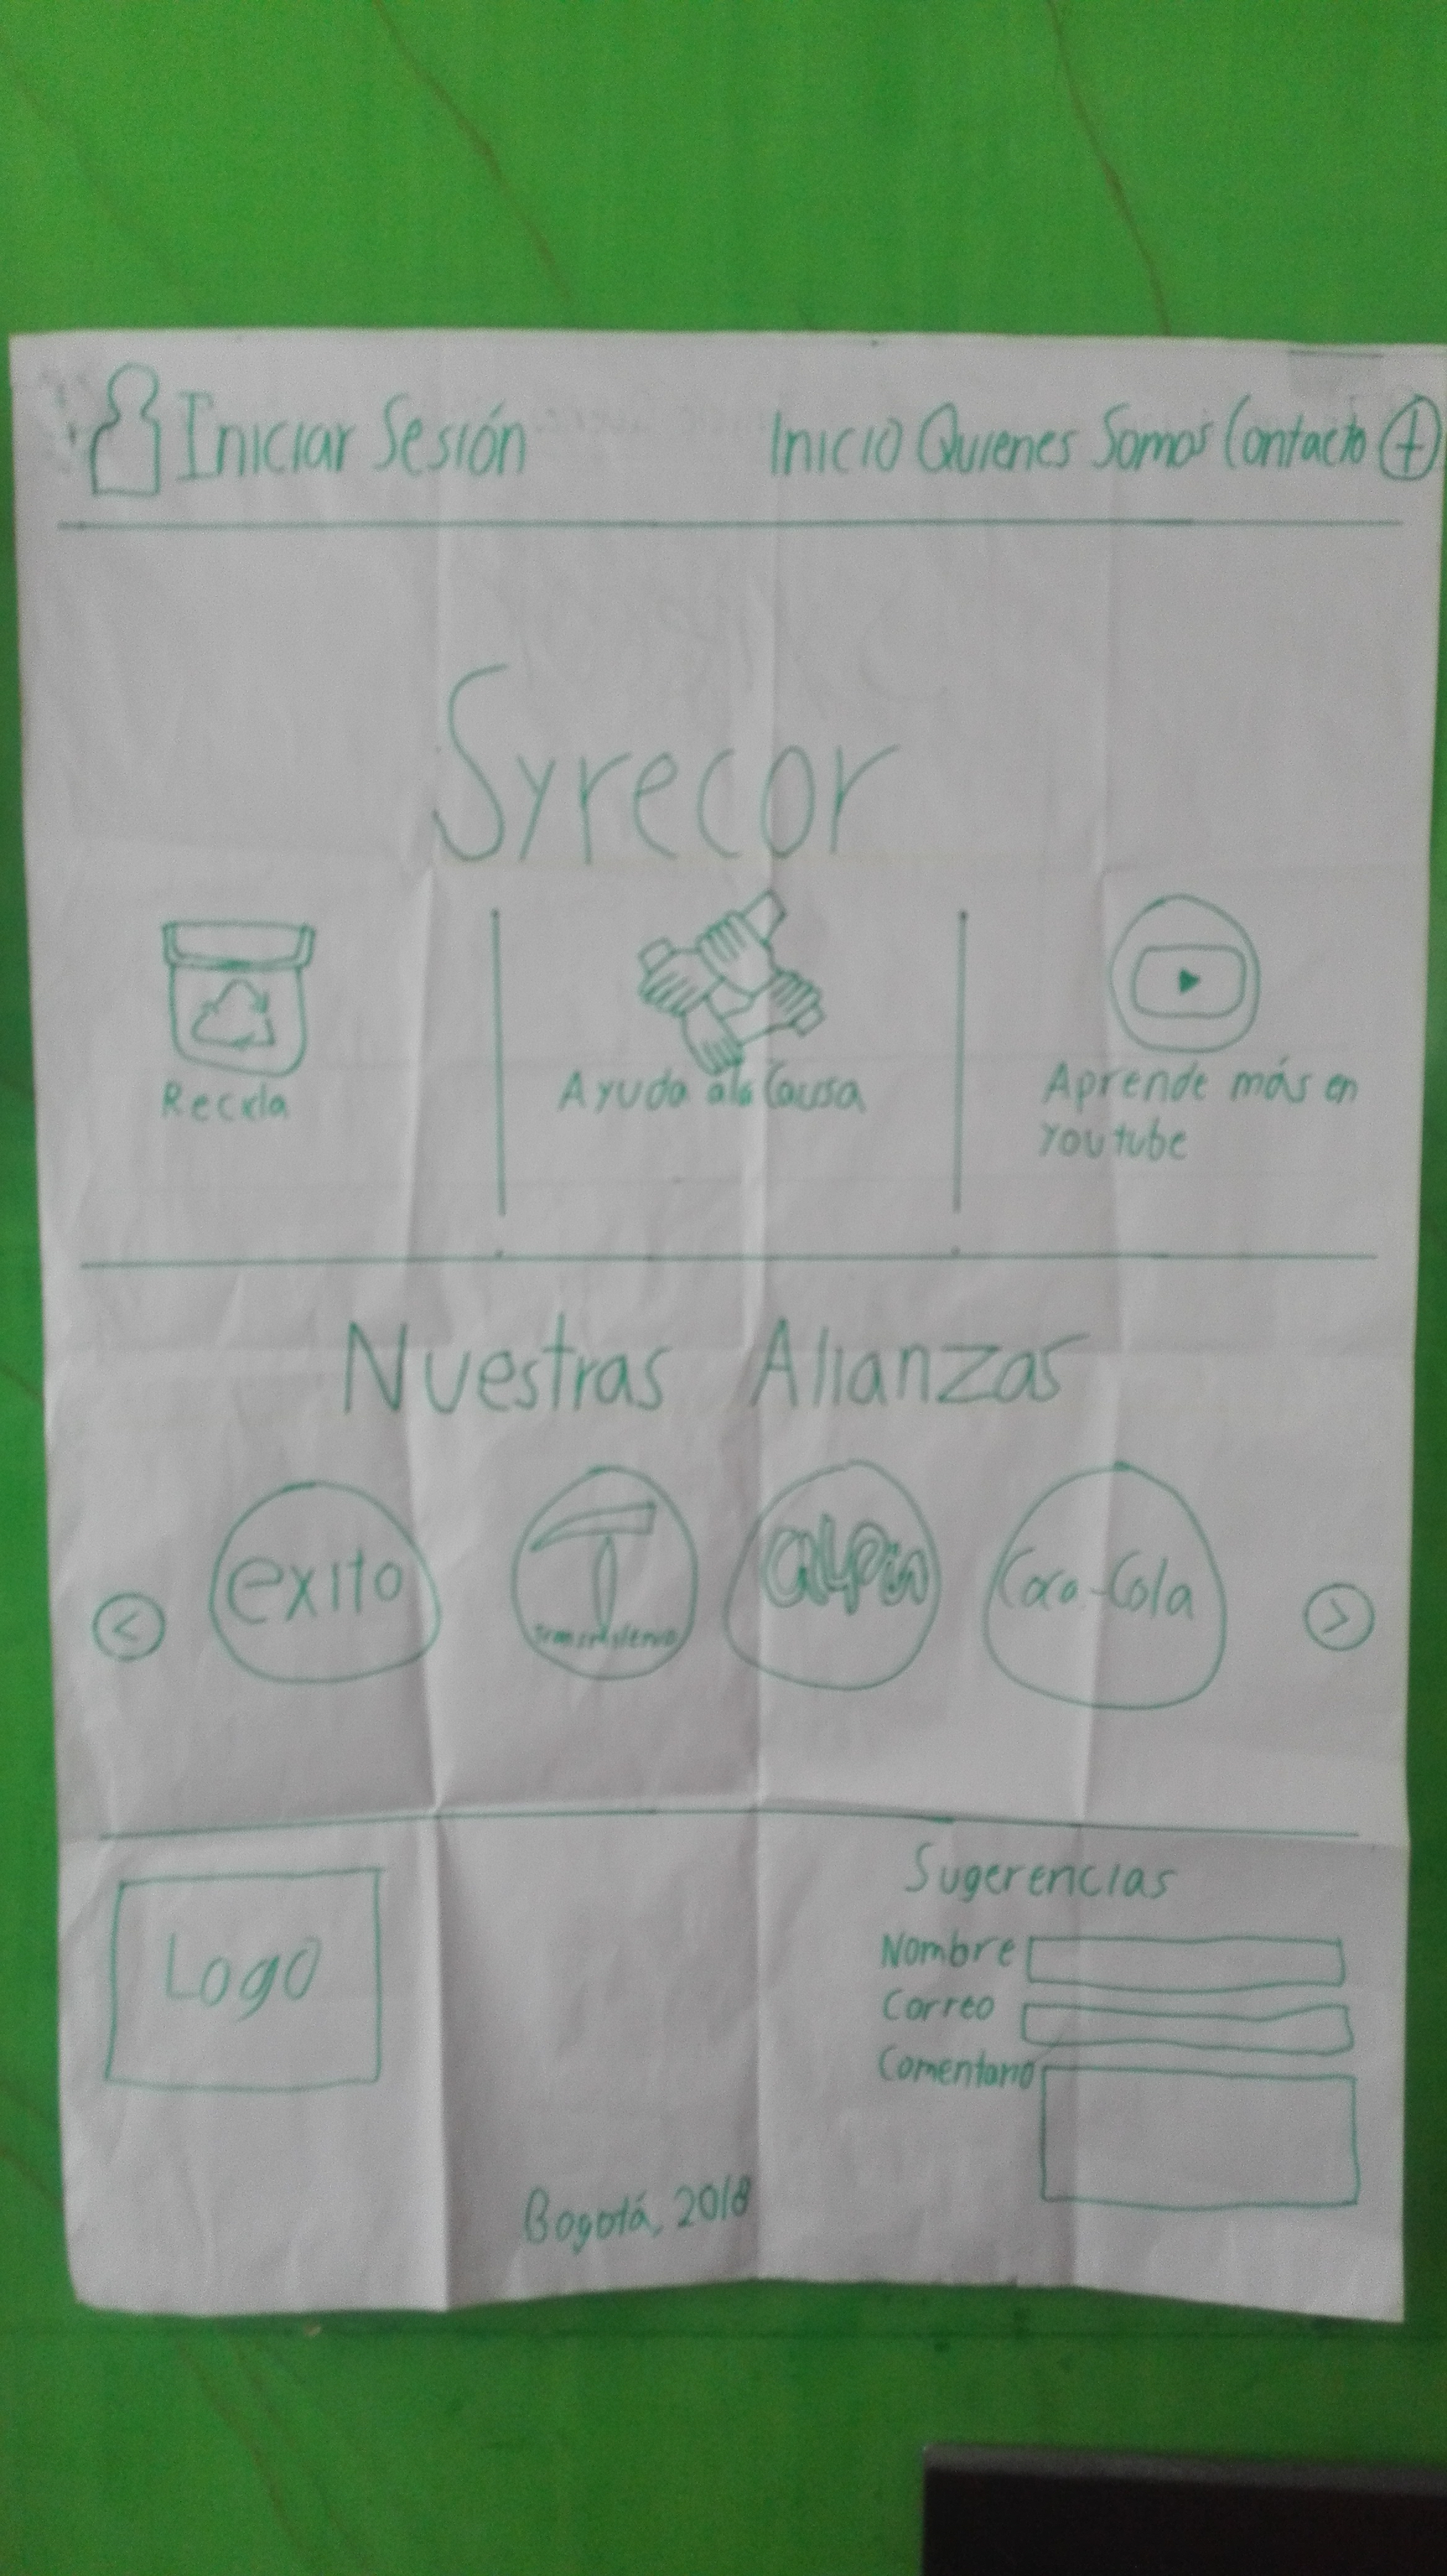 Iniciar Sesión
Inicio Quienes Somos Contacto +
Syrecor
Recicla
Ayuda a la Causa
Aprende más en
Youtube
Nuestras Alianzas
<
exito
T
Transmilenio
alpin
Coca-Cola
>
Logo
Sugerencias
Nombre
Correo
Comentario
Bogotá, 2018